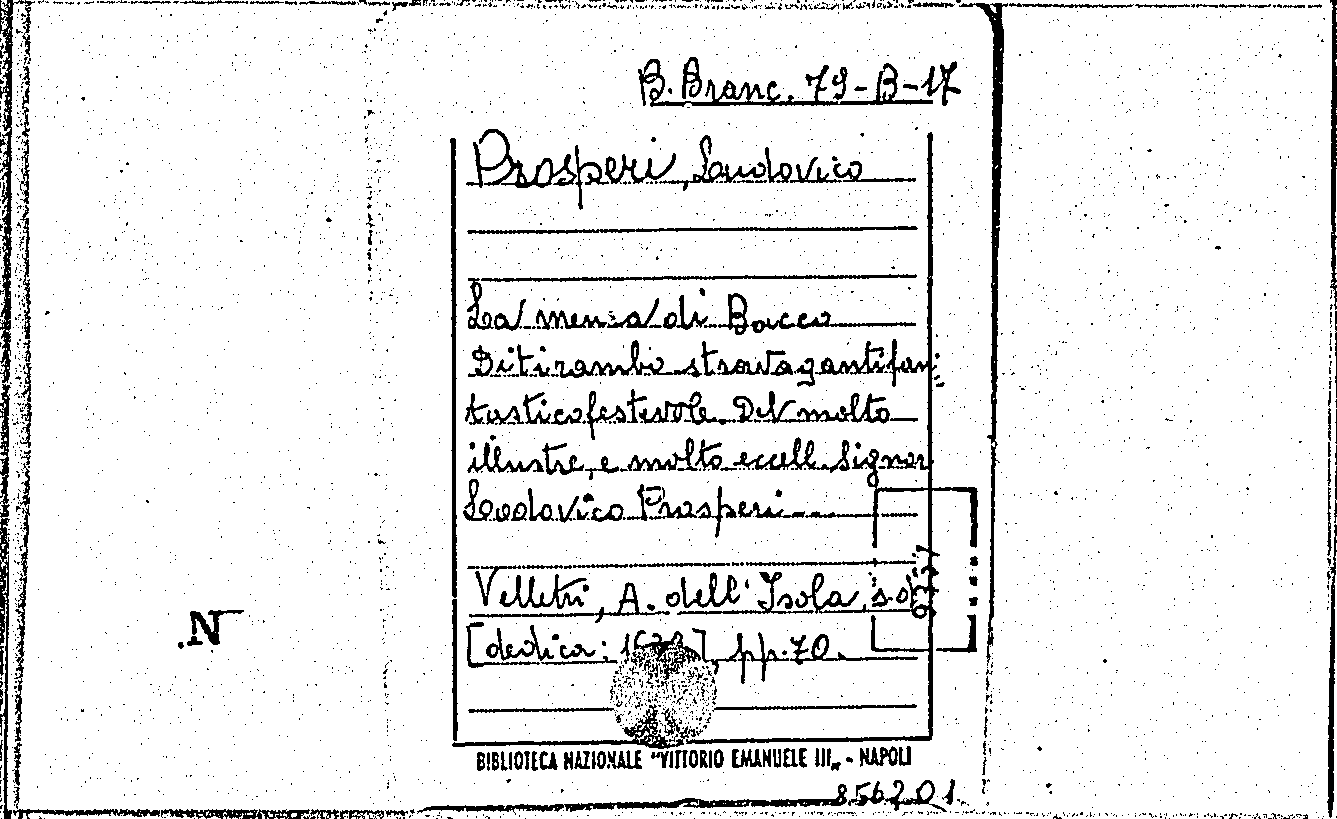 B. Branc. 79-B-17
Prosperi, Ludovico
La mensa di Bacco
Ditirambo stravagantifan=
tasticofestevole. Del molto
illustre, e molto eccell. Signor
Lodovico Prosperi...
Velletri, A. dell'Isola, s.d.
[dedica: ], pp. 70.
N
BIBLIOTECA NAZIONALE "VITTORIO EMANUELE III„ - NAPOLI
856201